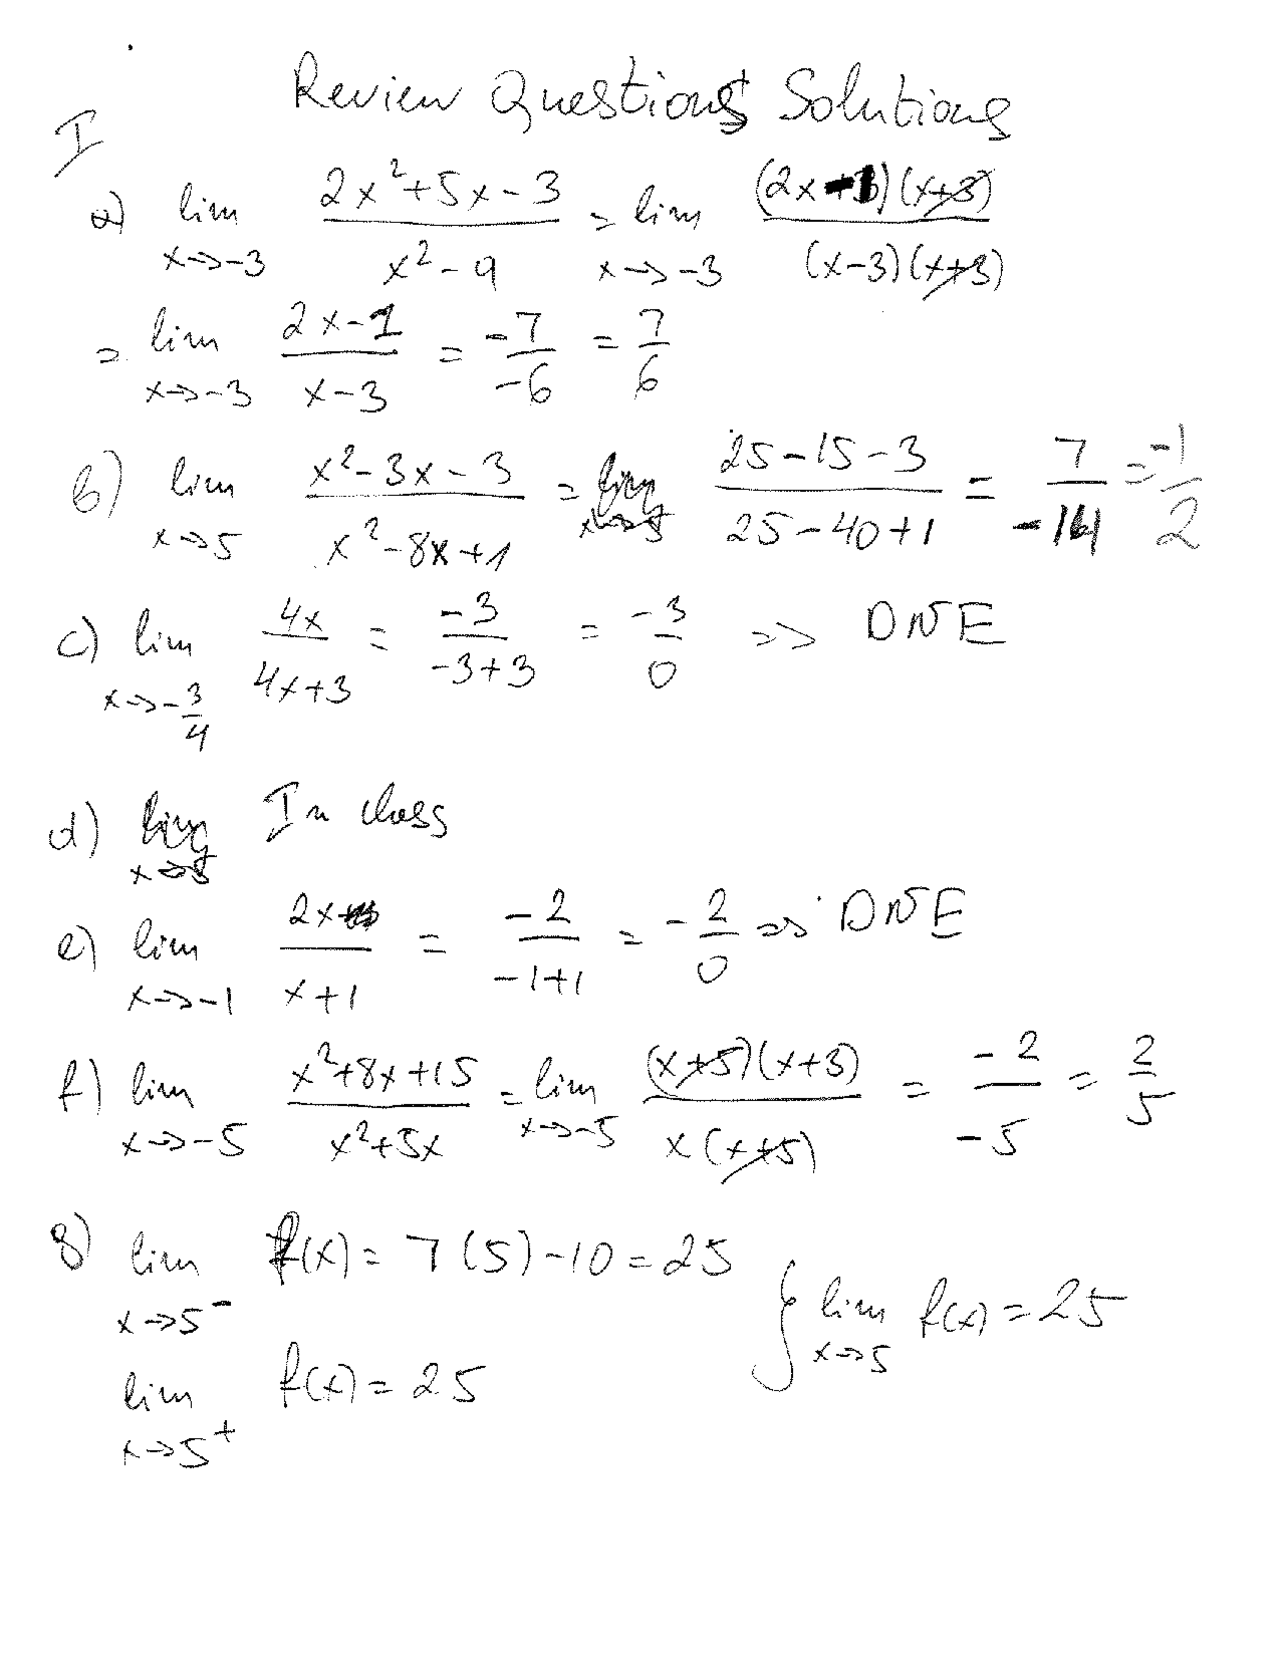 Review Questions Solutions
I
a) lim x→-3 (2x²+5x-3)/(x²-9) = lim x→-3 ((2x-1)(x+3))/((x-3)(x+3))
= lim x→-3 (2x-1)/(x-3) = -7/-6 = 7/6
b) lim x→5 (x²-3x-3)/(x²-8x+1) = (25-15-3)/(25-40+1) = 7/-14 = -1/2
c) lim x→-3/4 4x/(4x+3) = -3/(-3+3) = -3/0 => DNE
d) In class
e) lim x→-1 2x/(x+1) = -2/(-1+1) = -2/0 => DNE
f) lim x→-5 (x²+8x+15)/(x²+5x) = lim x→-5 ((x+5)(x+3))/(x(x+5)) = -2/-5 = 2/5
g) lim x→5⁻ f(x) = 7(5)-10 = 25
lim x→5⁺ f(x) = 25
} lim x→5 f(x) = 25